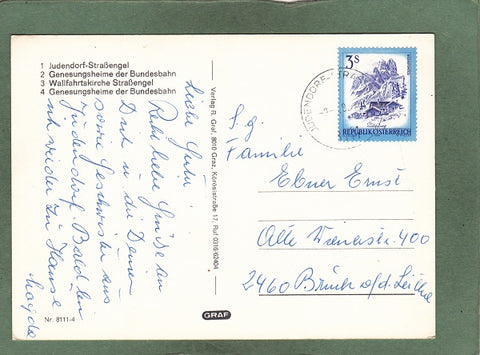 1 Judendorf-Straßengel
2 Genesungsheime der Bundesbahn
3 Wallfahrtskirche Straßengel
4 Genesungsheime der Bundesbahn
Liebe
Recht liebe Grüße an
Dich u. die Deinen
sowie Geschwister aus
Judendorf. Bald bin
ich wieder zu Hause
Nr. 8111-4
Verlag R. Graf, 8010 Graz, Körösistraße 17, Ruf 0316/62404
GRAF
3 S
REPUBLIK ÖSTERREICH
JUDENDORF-STRA
S. g.
Familie
Ebner Ernst
Alte Wienerstr. 400
2460 Bruck a/d. Leitha